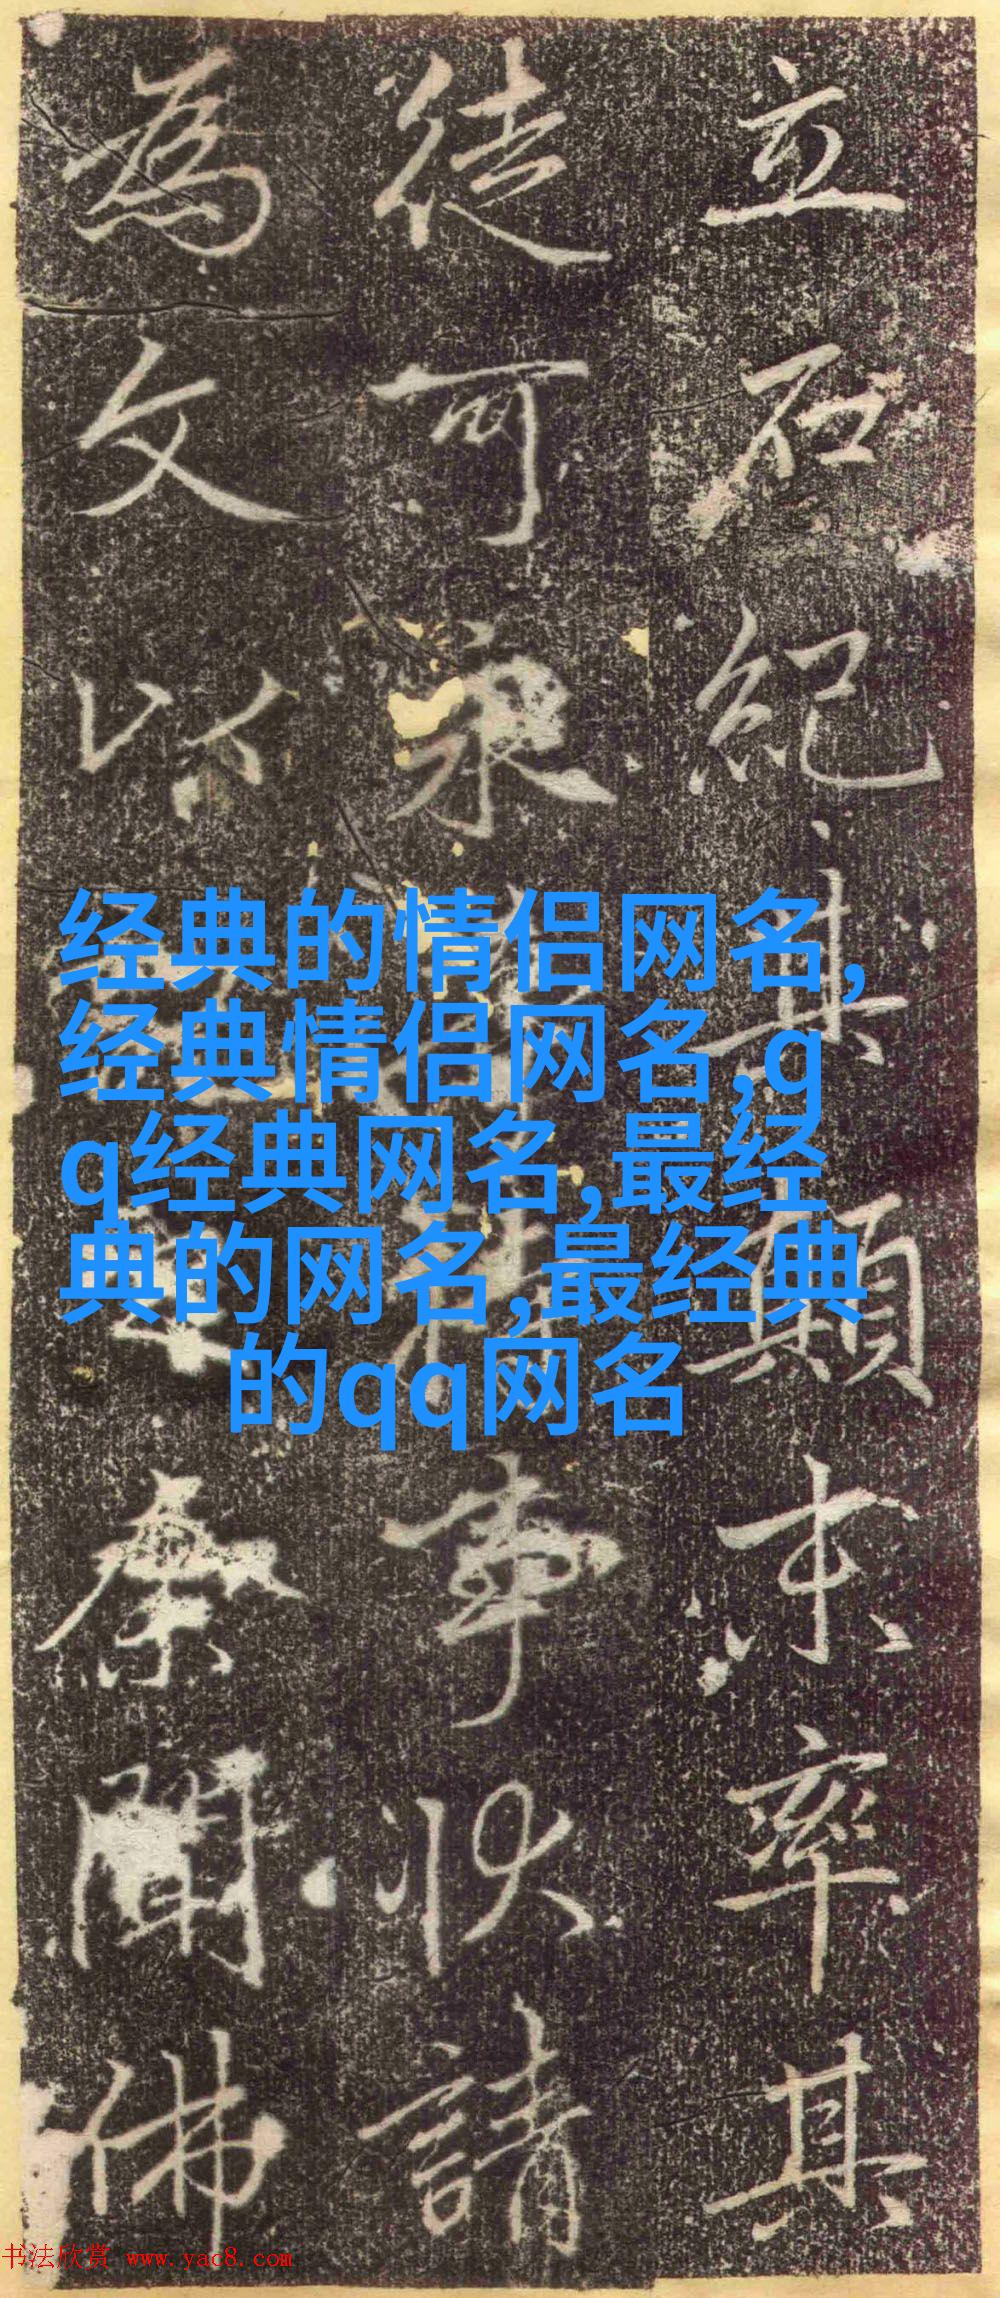 立石紀其顛末率其
徒可事狀請
為文以余聞佛
经典的情侣网名,
经典情侣网名,q
q经典网名,最经
典的网名,最经典
的qq网名
书法欣赏 www.yac8.com